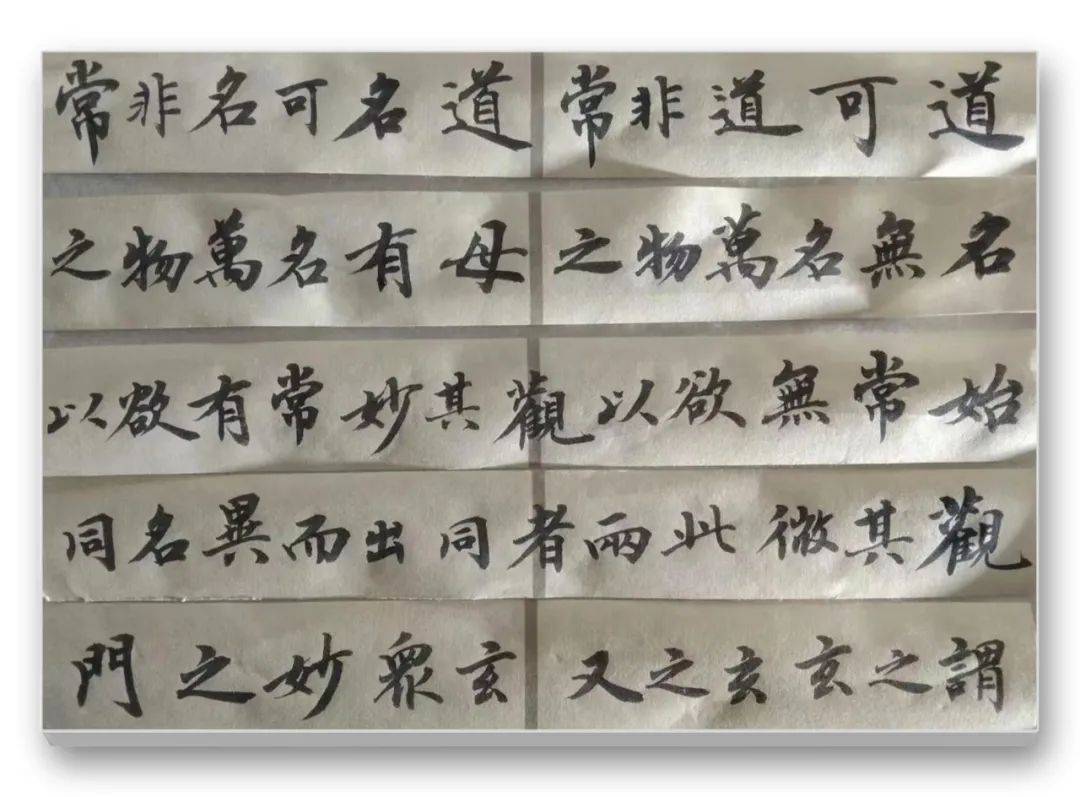 道可道非常道名可名非常
名無名萬物之母有名萬物之
始常無欲以觀其妙常有欲以
觀其微此兩者同出而異名同
謂之玄玄之又玄眾妙之門